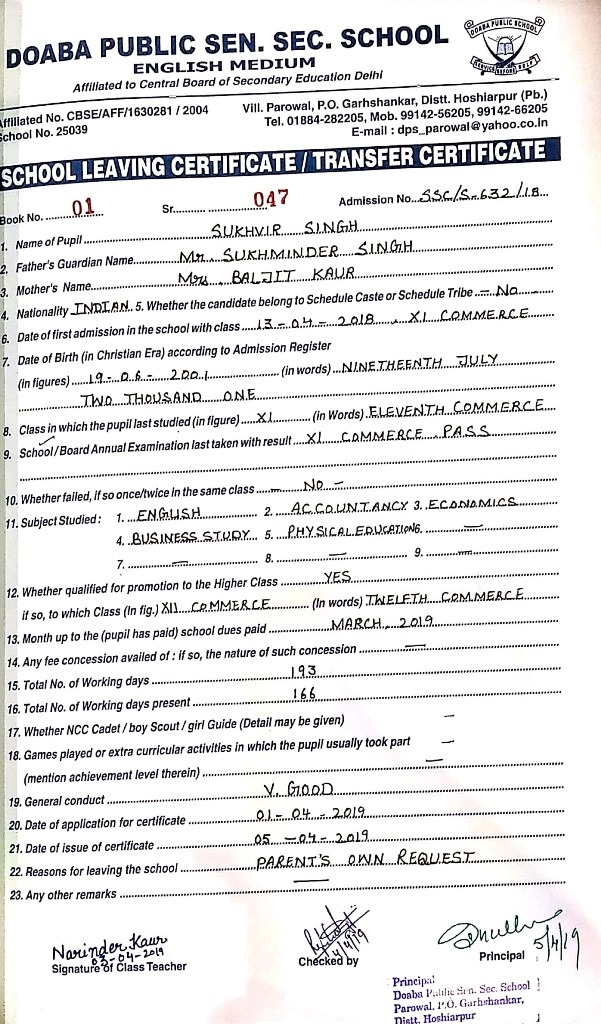 DOABA PUBLIC SEN. SEC. SCHOOL
DOABA PUBLIC SCHOOL
ENGLISH MEDIUM
Affiliated to Central Board of Secondary Education Delhi
SERVICE BEFORE SELF
Affiliated No. CBSE/AFF/1630281 / 2004
Vill. Parowal, P.O. Garhshankar, Distt. Hoshiarpur (Pb.)
School No. 25039
Tel. 01884-282205, Mob. 99142-56205, 99142-66205
E-mail : dps_parowal@yahoo.co.in
SCHOOL LEAVING CERTIFICATE / TRANSFER CERTIFICATE
Book No. 01 Sr. 047 Admission No. SSC/S-632/18
1. Name of Pupil SUKHVIR SINGH
2. Father's Guardian Name Mr. SUKHMINDER SINGH
3. Mother's Name Mrs. BALJIT KAUR
4. Nationality INDIAN 5. Whether the candidate belong to Schedule Caste or Schedule Tribe – No –
6. Date of first admission in the school with class 13-04-2018, XI COMMERCE
7. Date of Birth (in Christian Era) according to Admission Register
(in figures) 19-06-2001 (in words) NINETHEENTH JULY
TWO THOUSAND ONE
8. Class in which the pupil last studied (in figure) XI (in Words) ELEVENTH COMMERCE
9. School/Board Annual Examination last taken with result XI COMMERCE PASS
10. Whether failed, if so once/twice in the same class – NO –
11. Subject Studied : 1. ENGLISH 2. ACCOUNTANCY 3. ECONOMICS
4. BUSINESS STUDY 5. PHYSICAL EDUCATION 6. —
7. — 8. — 9. —
12. Whether qualified for promotion to the Higher Class YES
if so, to which Class (In fig.) XII COMMERCE (In words) TWELFTH COMMERCE
13. Month up to the (pupil has paid) school dues paid MARCH, 2019
14. Any fee concession availed of : if so, the nature of such concession —
15. Total No. of Working days 193
16. Total No. of Working days present 166
17. Whether NCC Cadet / boy Scout / girl Guide (Detail may be given) –
18. Games played or extra curricular activities in which the pupil usually took part –
(mention achievement level therein) —
19. General conduct V. GOOD
20. Date of application for certificate 01-04-2019
21. Date of issue of certificate 05-04-2019
22. Reasons for leaving the school PARENT'S OWN REQUEST
23. Any other remarks —
Narinder Kaur
03-04-2019
Signature of Class Teacher
4/4/19
Checked by
5/4/19
Principal
Principal
Doaba Public Sen. Sec. School
Parowal, P.O. Garhshankar,
Distt. Hoshiarpur